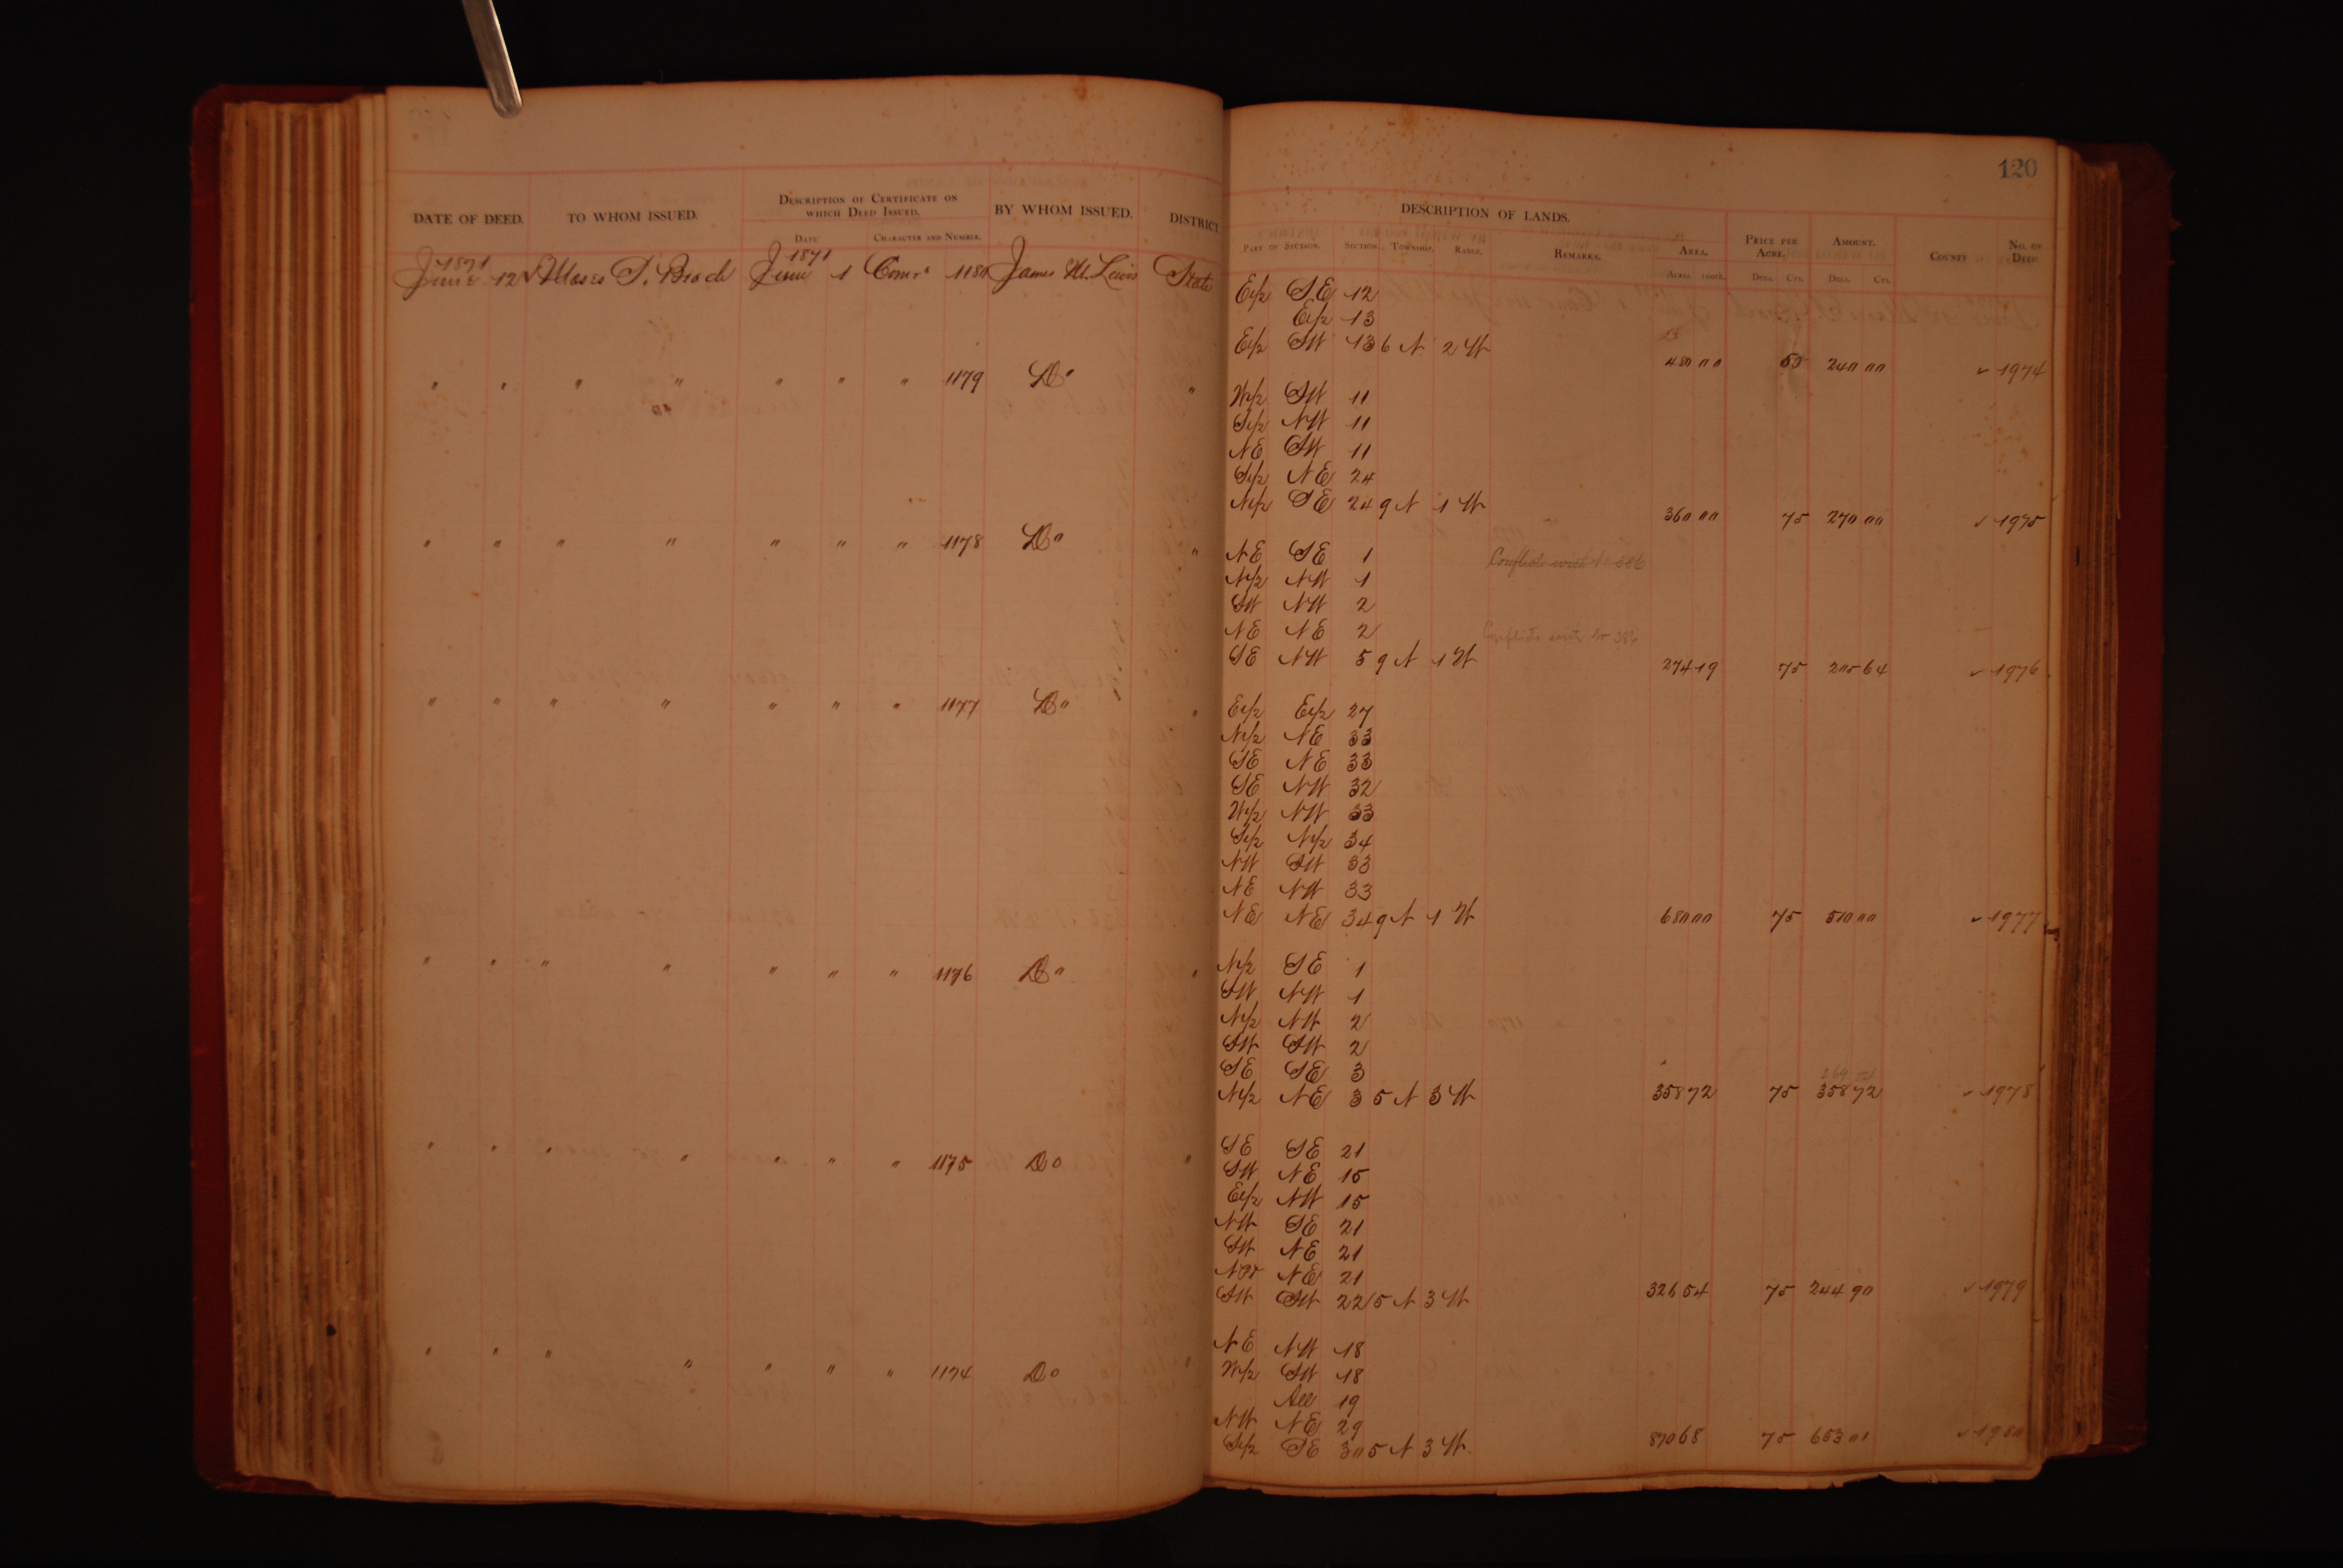 120
DATE OF DEED. TO WHOM ISSUED. DESCRIPTION OF CERTIFICATE ON WHICH DEED ISSUED. BY WHOM ISSUED. DISTRICT DESCRIPTION OF LANDS. PRICE PER ACRE. AMOUNT. COUNTY NO. OF DEED
DATE CHARACTER AND NUMBER. PART OF SECTION. SECTION. TOWNSHIP. RANGE. REMARKS. AREA.
ACRES. 100th. DOLL. CTS. DOLL. CTS.
1871 1871
June 12 Moses S. Beach June 1 Comrs 1180 James W. Lewis State E1/2 SE 12
E1/2 13
E1/2 SW 13 6 N 2 W
480 00 50 240 00 ✓ 1974
" " " " " " " 1179 Do " W1/2 SW 11
S1/2 NW 11
NE SW 11
S1/2 NE 24
N1/2 SE 24 9 N 1 W 360 00 75 270 00 ✓ 1975
" " " " " " " 1178 Do " NE SE 1 Conflicts with
N1/2 NW 1
SW NW 2
NE NE 2 Conflicts with
SE NW 5 9 N 1 W 274 19 75 205 64 ✓ 1976
" " " " " " " 1177 Do " E1/2 E1/2 27
N1/2 NE 33
SE NE 33
SE NW 32
W1/2 NW 33
S1/2 N1/2 34
NW SW 33
NE NW 33
NE NE 34 9 N 1 W 680 00 75 510 00 ✓ 1977
" " " " " " " 1176 Do " N1/2 SE 1
SW NW 1
N1/2 NW 2
SW SW 2
SE SE 3
N1/2 NE 3 5 N 3 W 358 72 75 358 72 ✓ 1978
" " " " " " " 1175 Do " SE SE 21
SW NE 15
E1/2 NW 15
NW SE 21
SW NE 21
NW NE 21
SW SW 22 5 N 3 W 326 54 75 244 90 ✓ 1979
" " " " " " " 1174 Do " NE NW 18
W1/2 SW 18
All 19
NW NE 29
S1/2 SE 30 5 N 3 W 870 68 75 653 01 ✓ 1980